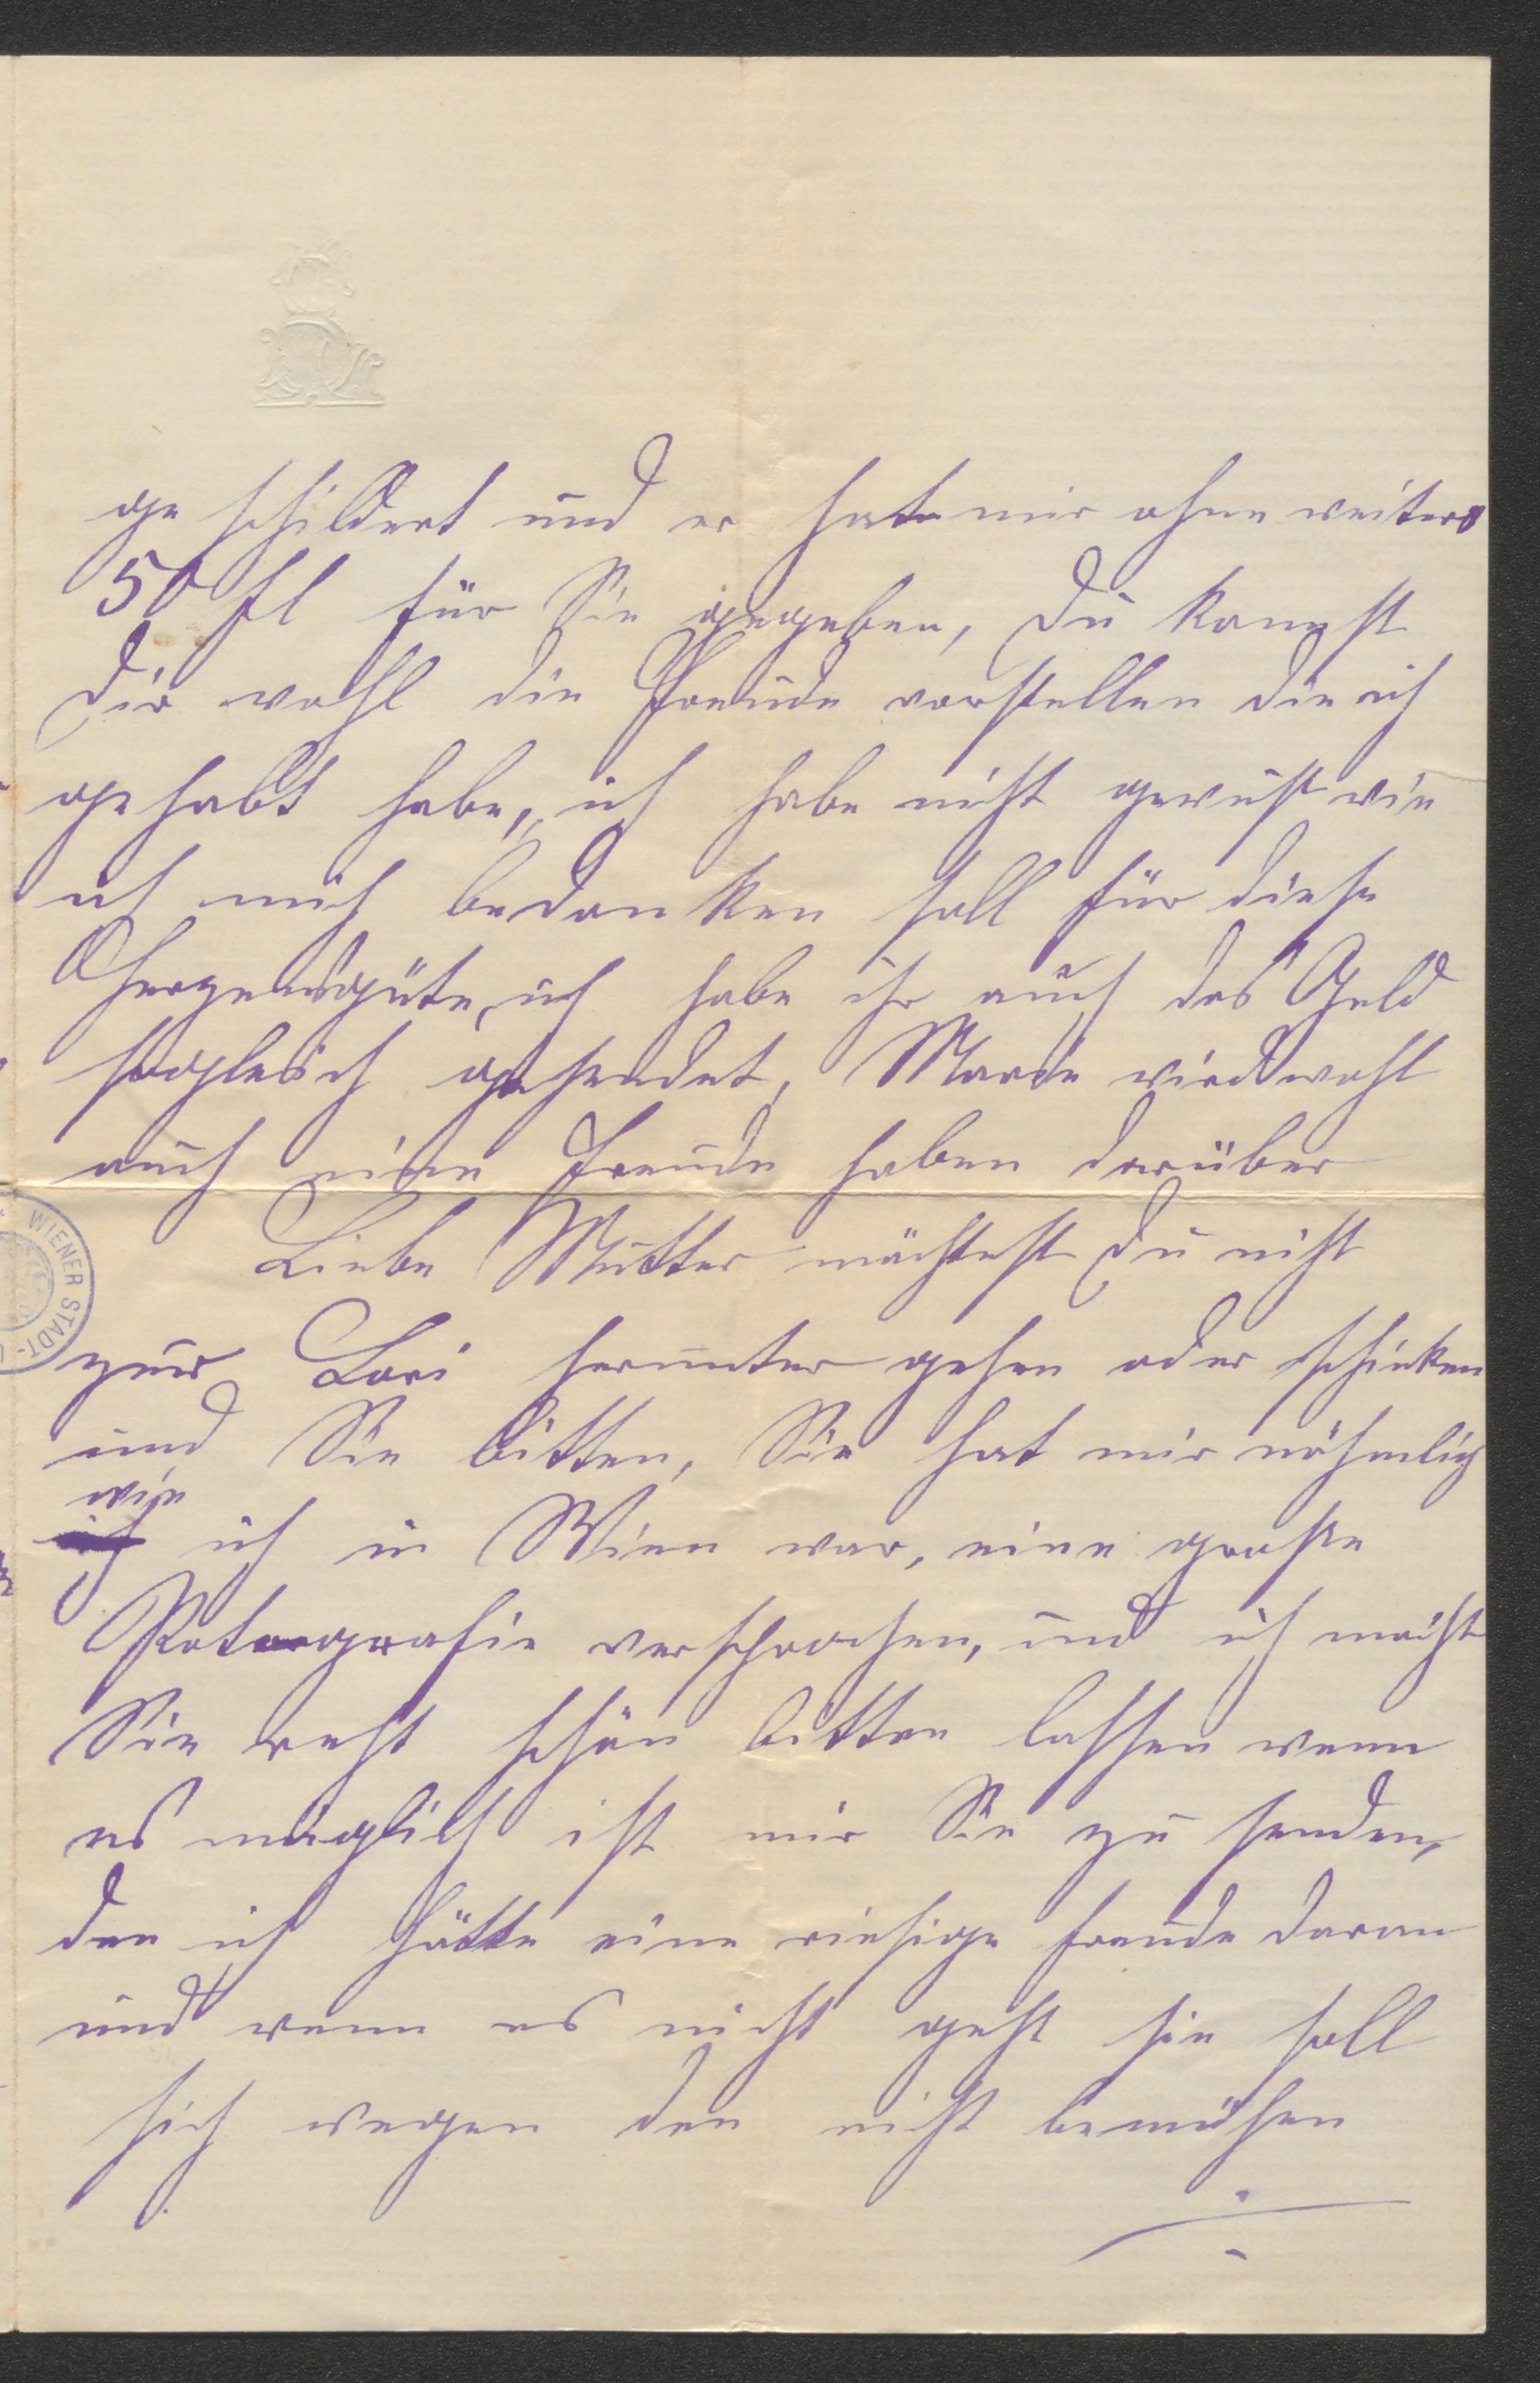 ge schildert und er hat mir ohne weiters
50 fl für Sie gegeben, Du kannst
Dir wohl die Freude vorstellen die ich
gehabt habe, ich habe nicht gewust wie
ich mich bedanken soll für diese
Herzensgüte, ich habe ihr auch das Geld
sogleich gesendet, Marie wird wohl
auch eine Freude haben darüber
Liebe Mutter möchtest Du nicht
zur Lori herunter gehen oder schicken
und Sie bitten, Sie hat mir nöhmlich
wie
ich in Wien war, eine große
Fotografie versprochen, und ich möcht
Sie recht schön bitten lassen wenn
es möglich ist mir Sie zu senden,
den ich hätte eine riesige Freude daran
und wenn es nicht geht sie soll
sich wegen den nicht bemühen
WIENER STADT-